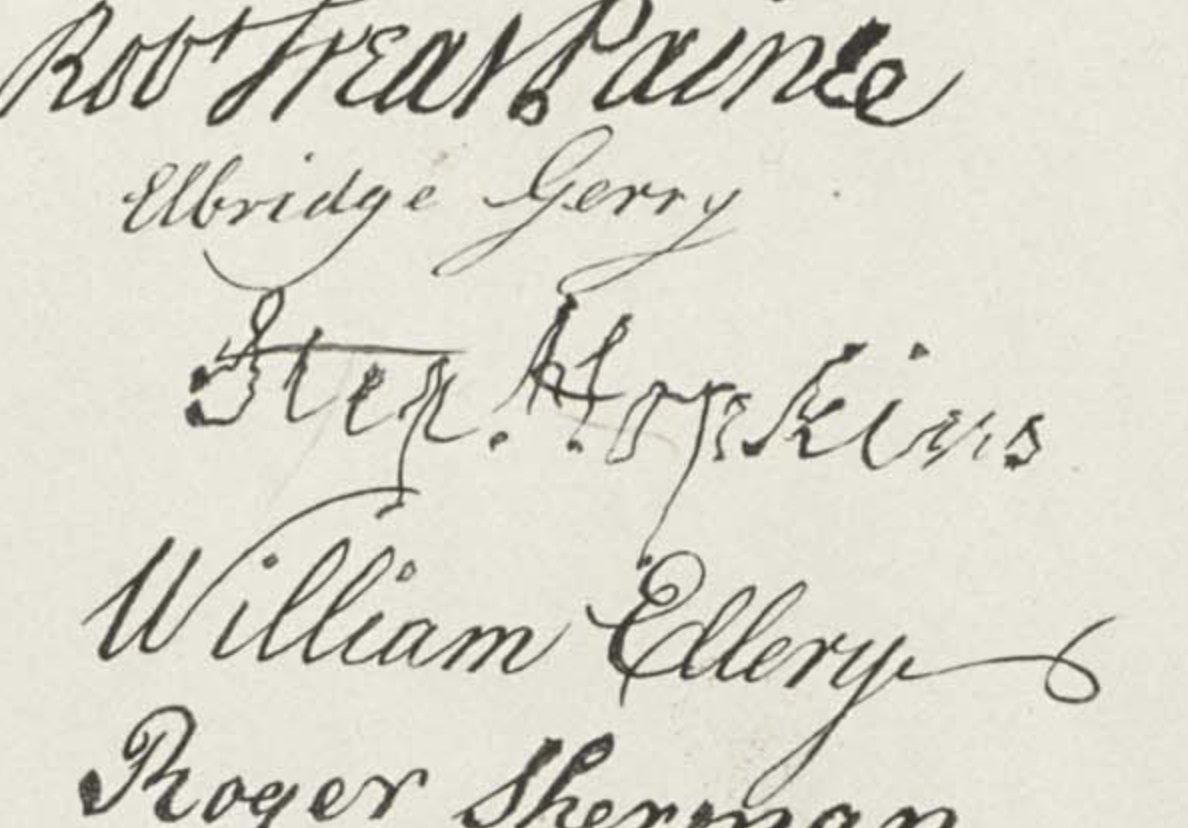 Robt Treat Paine
Elbridge Gerry
Step. Hopkins
William Ellery
Roger Sherman